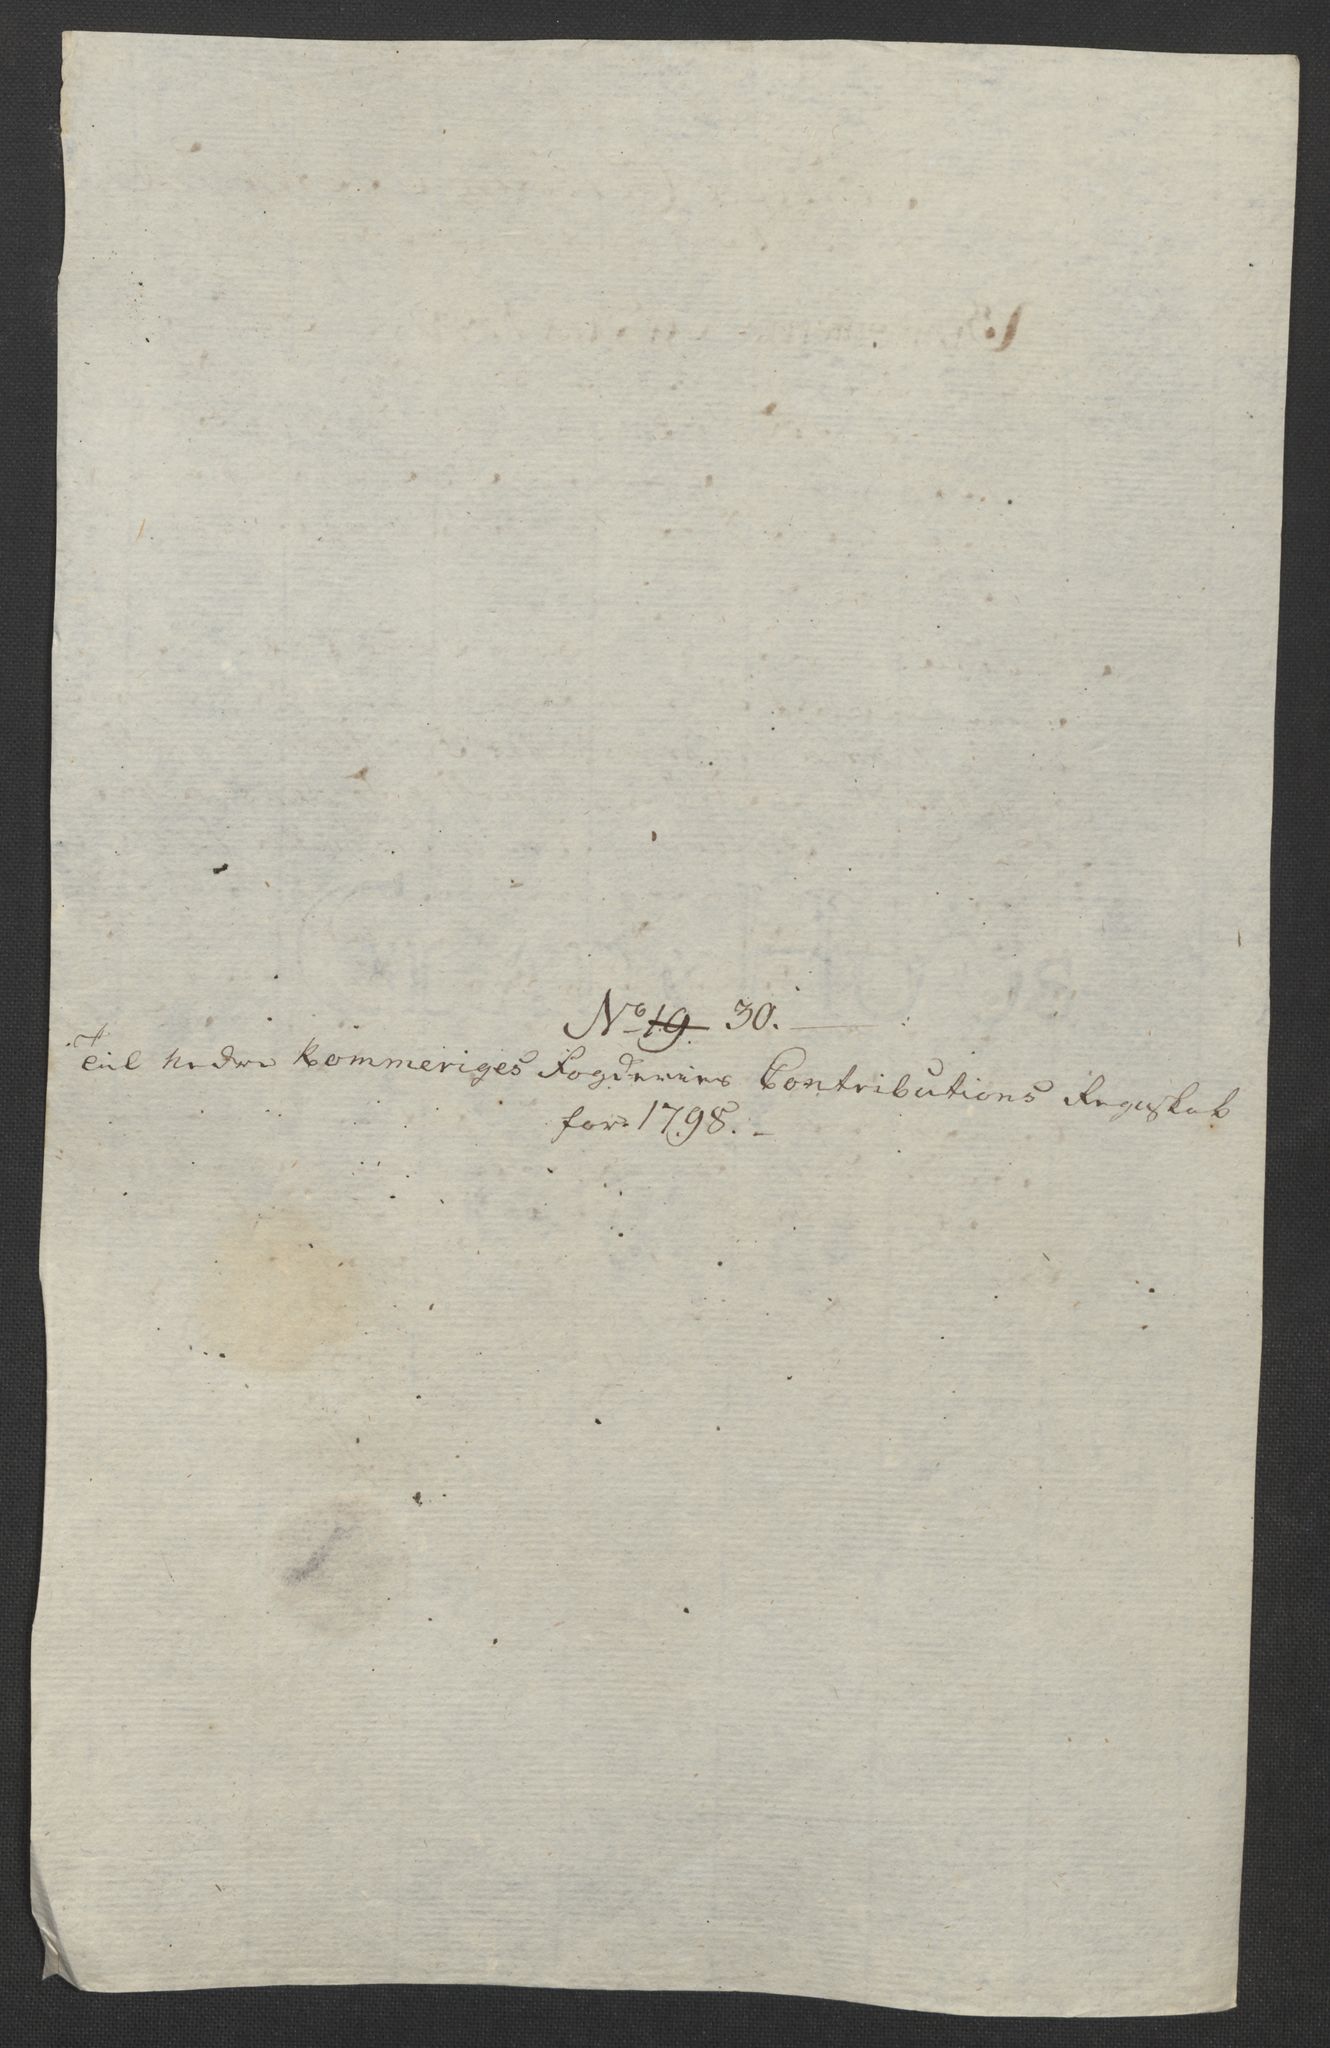 No 19. 30.
Til Nedre Rommeriges Fogderies Contributions Regnskab
for 1798.